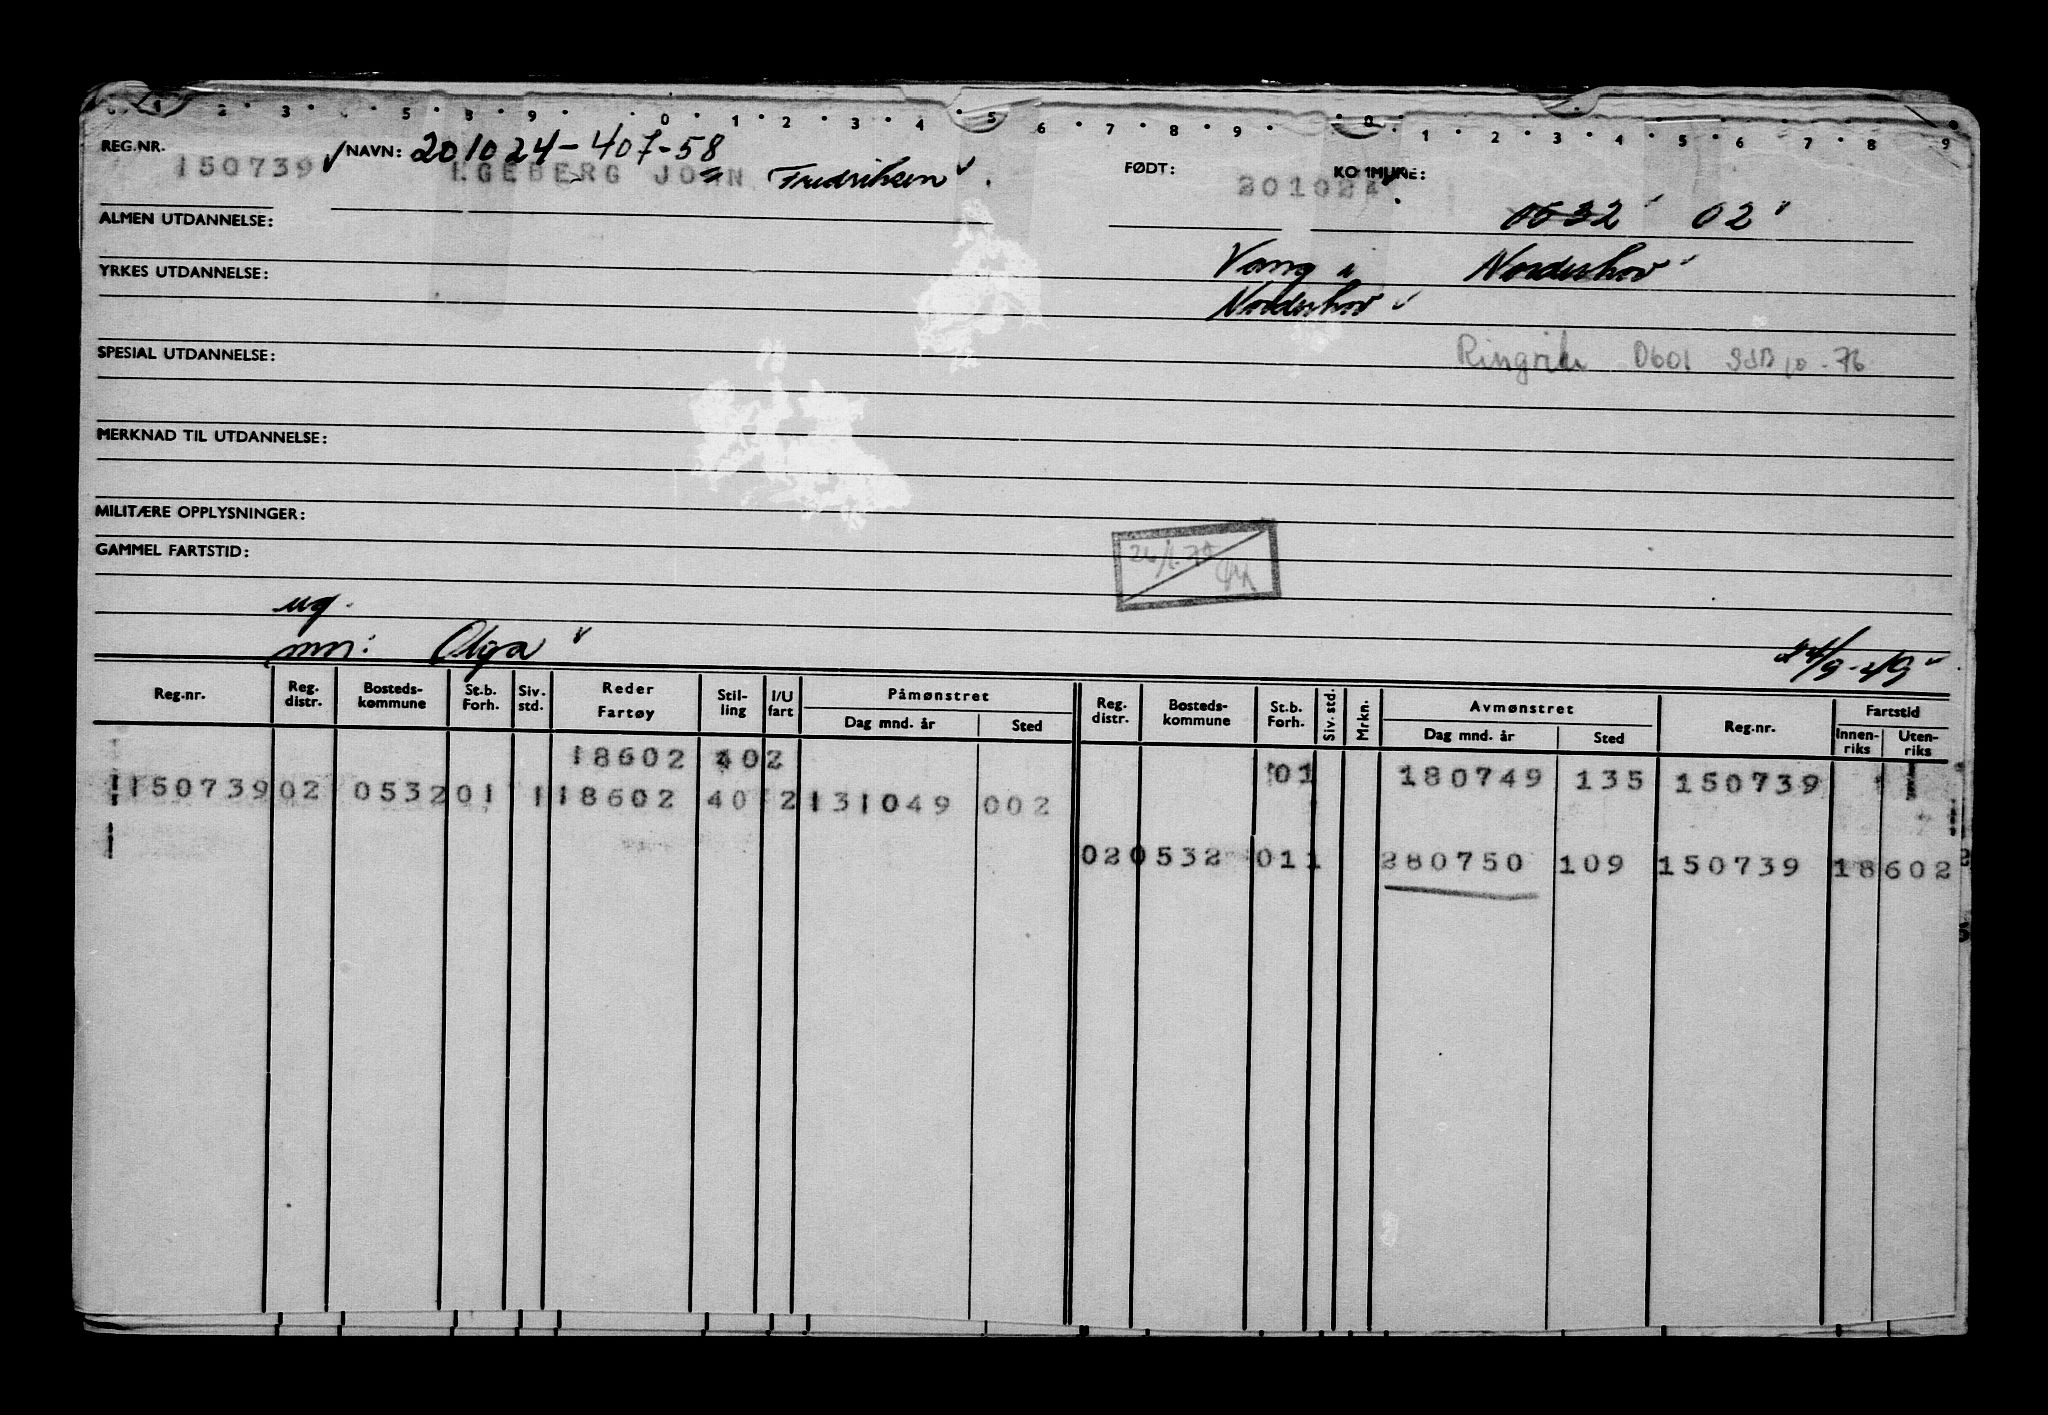 1 2 3 5 8 9 0 1 2 3 4 5 6 7 8 9 0 1 2 3 4 5 6 7 8 9
REG.NR. NAVN: 201024-407-58
150739 EGEBERG JOHN Fredriksen FØDT: 201024 KOMMUNE:
ALMEN UTDANNELSE: 0532 02
YRKES UTDANNELSE: Vang Norderhov
Norderhov
SPESIAL UTDANNELSE: Ringrike 0601 10-76
MERKNAD TIL UTDANNELSE:
MILITÆRE OPPLYSNINGER:
GAMMEL FARTSTID:
ug.
mn: Olga 24/9-49
Reg.nr. Reg. distr. Bosteds-kommune St.b. Forh. Siv. std. Reder Fartøy Stil-ling I/U fart Påmønstret Dag mnd. år Sted Reg. distr. Bosteds-kommune St.b. Forh. Siv. std. Mrkn. Avmønstret Dag mnd. år Sted Reg.nr. Fartstid Innen-riks Uten-riks
18602 402 01 180749 135 150739 1
150739 02 0532 01 1 18602 40 2 131049 002
02 0532 01 1 280750 109 150739 18602